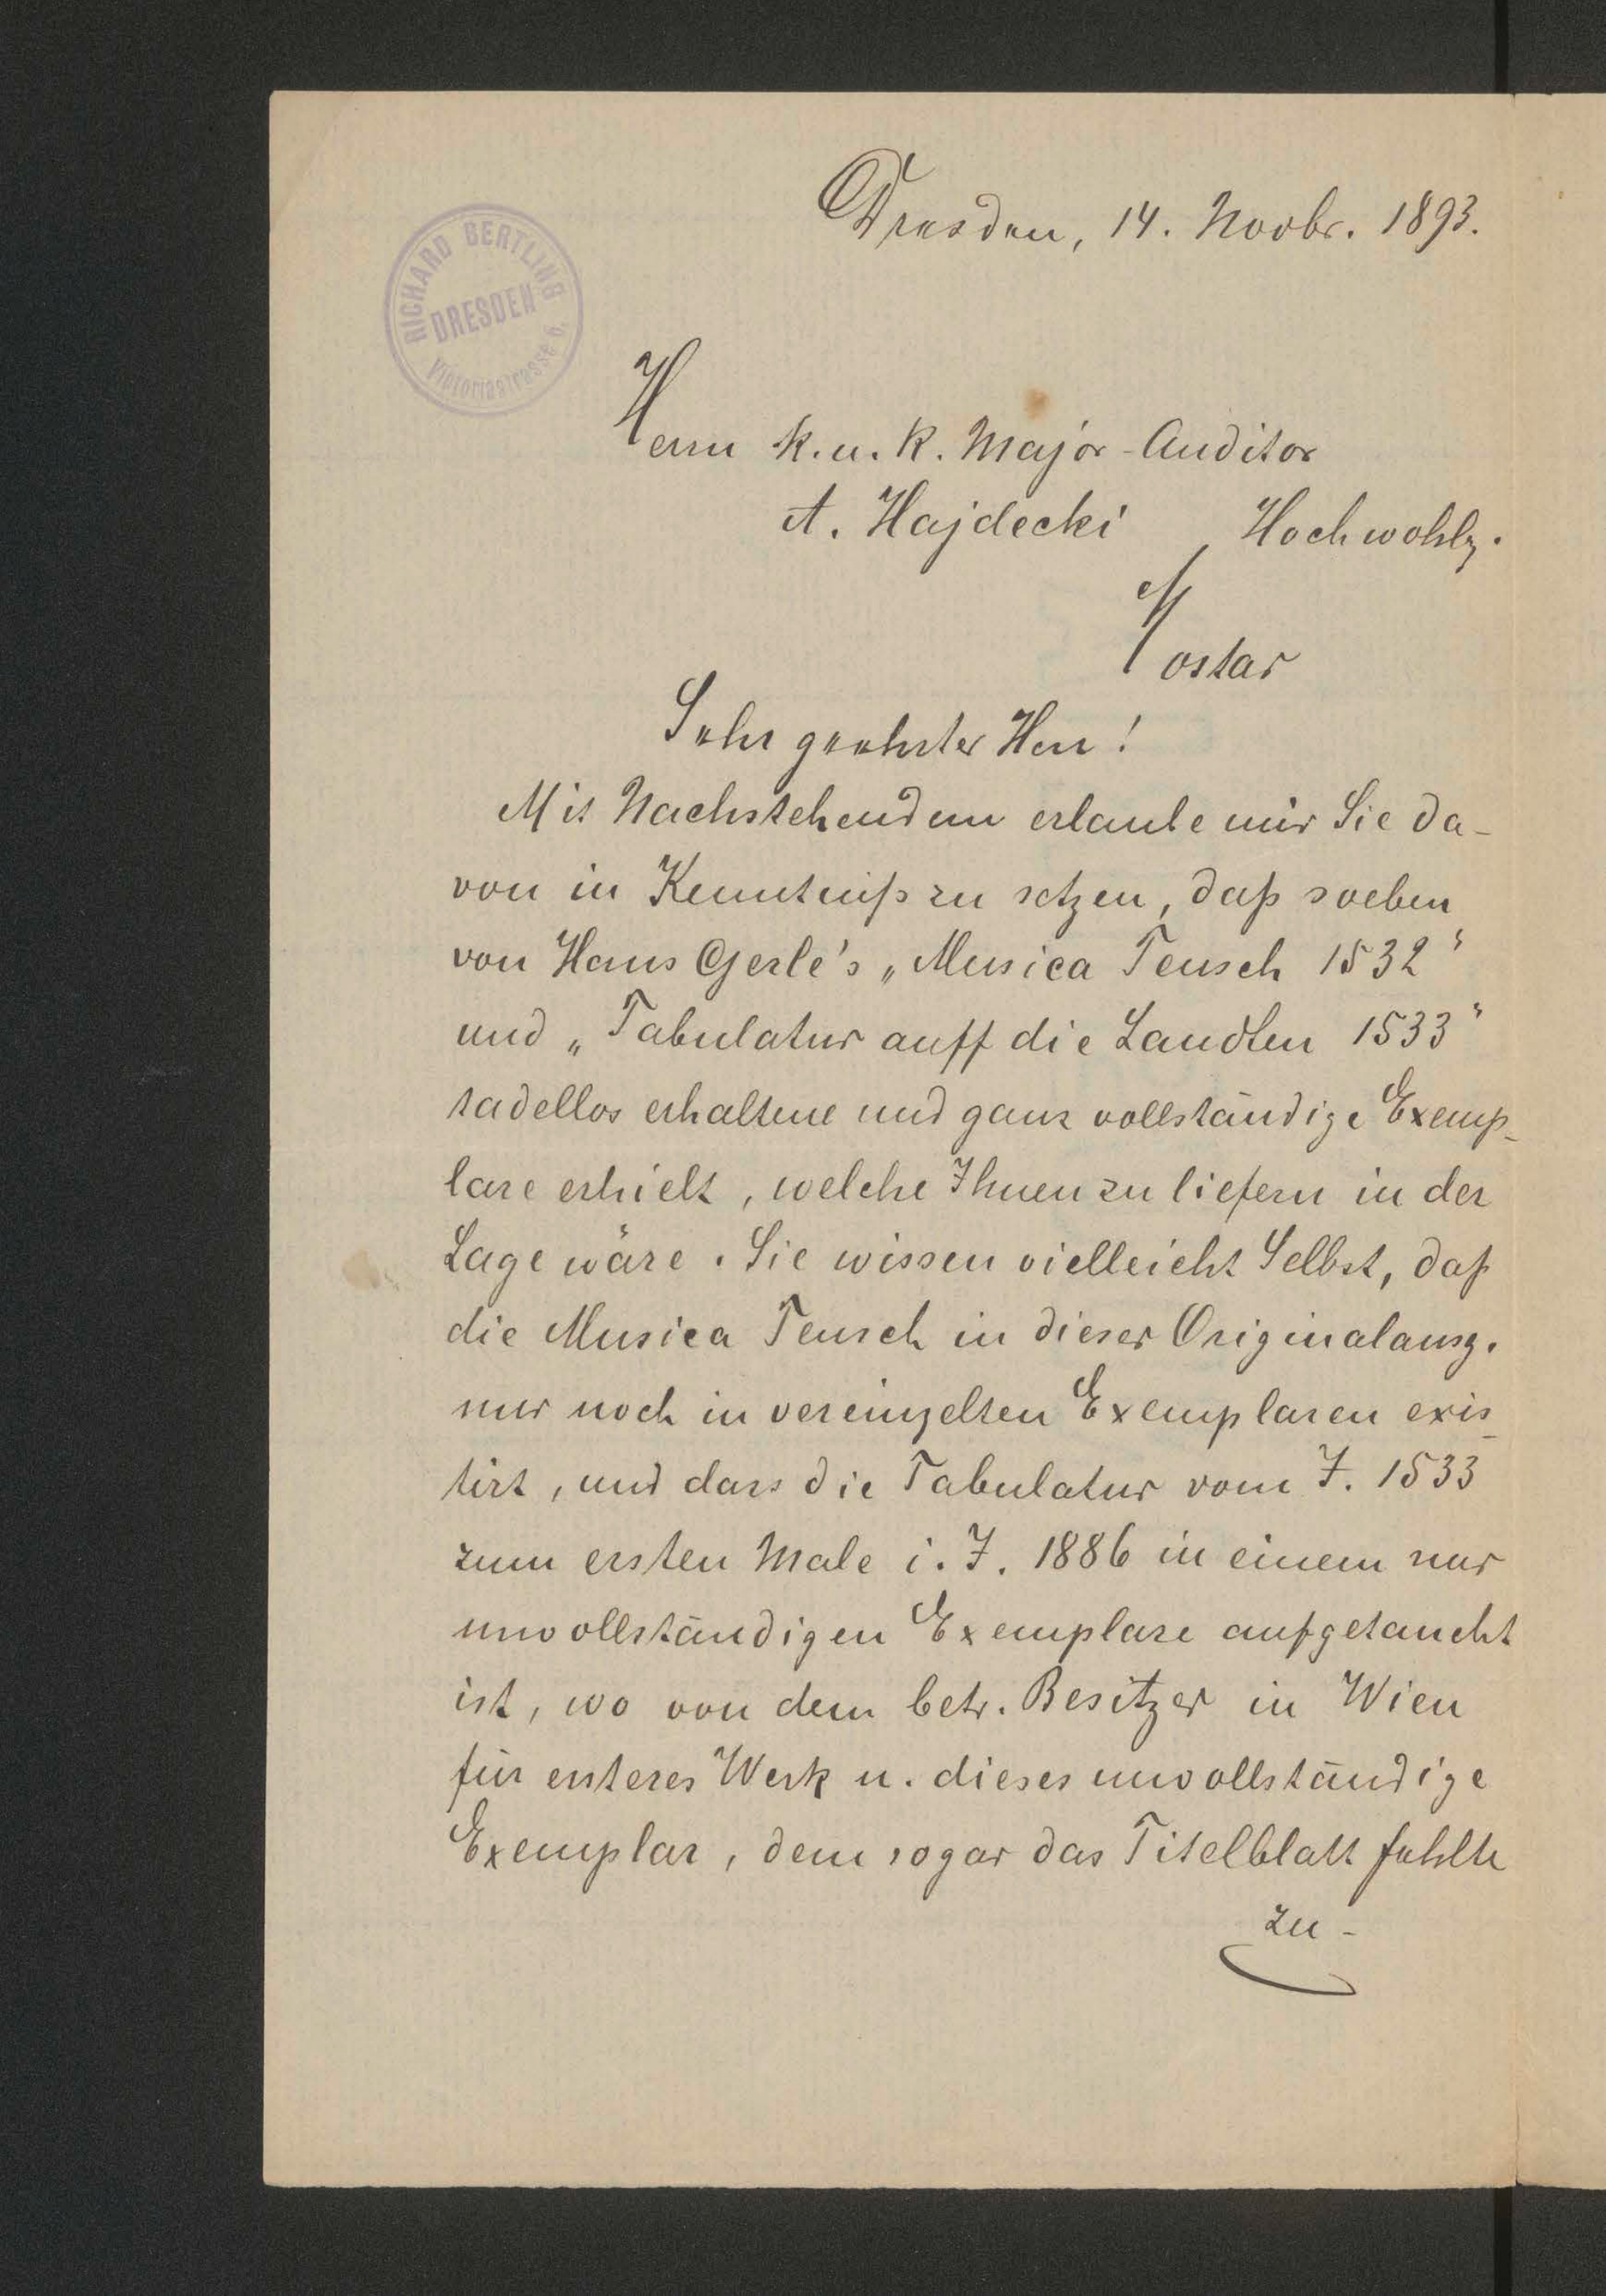 Dresden, 14. Novbr. 1893.
RICHARD BERTLING
DRESDEN
Victoriastrasse 6.
Herrn K. u. K. Major-Auditor
A. Hajdecki Hochwohlg.
Mostar
Sehr geehrter Herr!
Mit Nachstehendem erlaube mir Sie da-
von in Kenntniß zu setzen, daß soeben
von Hans Gerle's „Musica Teusch 1532“
und „Tabulatur auff die Laudten 1533“
tadellos erhaltene und ganz vollständige Exemp-
lare erhielt, welche Ihnen zu liefern in der
Lage wäre. Sie wissen vielleicht Selbst, daß
die Musica Teusch in dieser Originalausg.
nur noch in vereinzelten Exemplaren exis-
tirt, und dass die Tabulatur vom J. 1533
zum ersten Male i. J. 1886 in einem nur
unvollständigen Exemplare aufgetaucht
ist, wo von dem betr. Besitzer in Wien
für ersteres Werk u. dieses unvollständige
Exemplar, dem sogar das Titelblatt fehlte
zu-